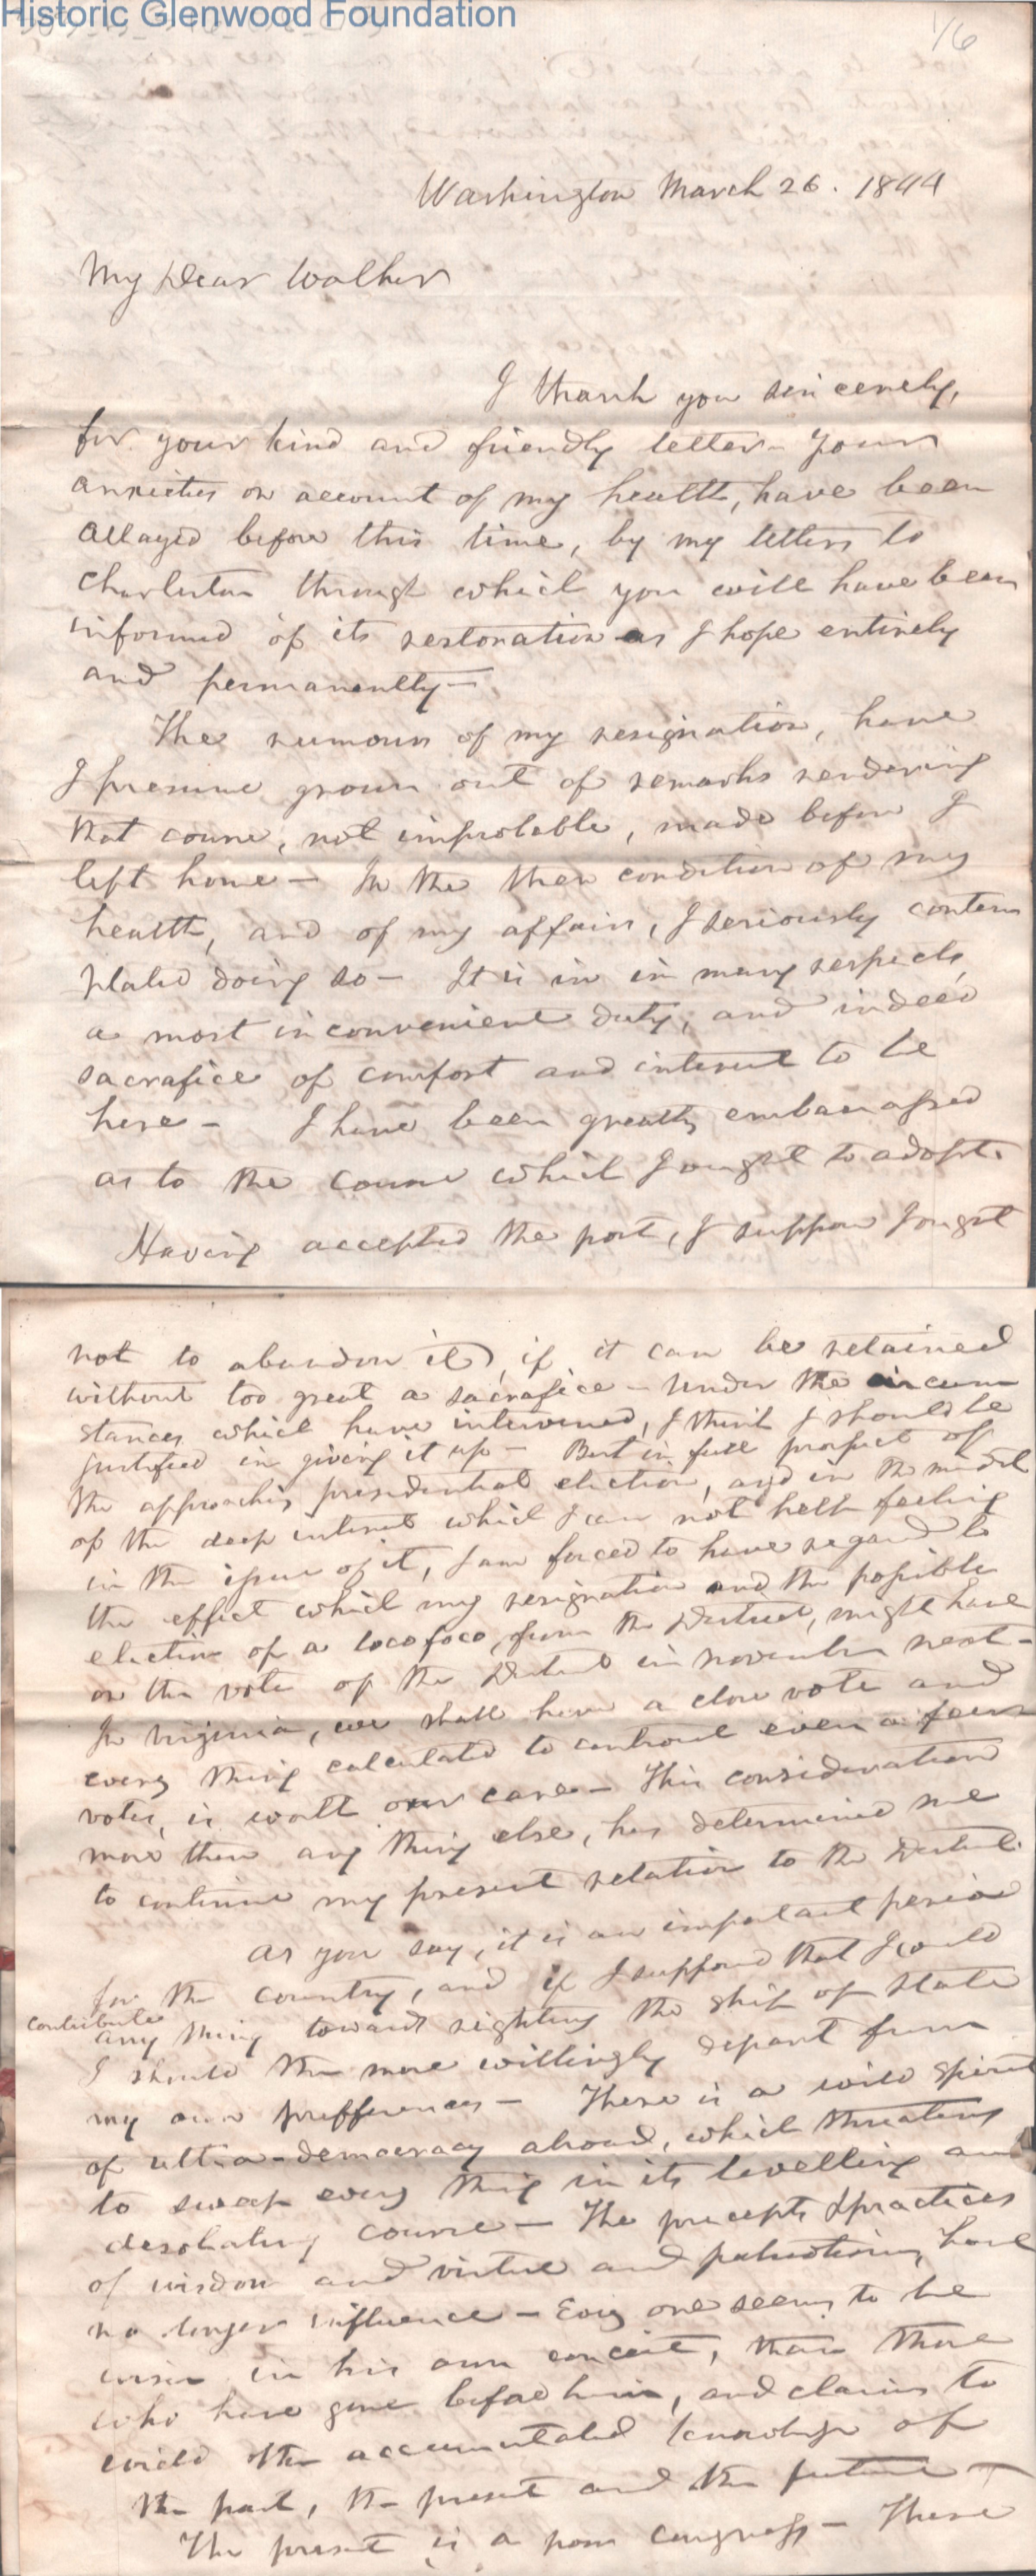 Historic Glenwood Foundation
1/6
Washington March 26. 1844
My Dear Walker
I thank you sincerely,
for your kind and friendly letter - Your
anxieties on account of my health, have been
allayed before this time, by my letters to
Charleston through which you will have been
informed of its restoration as I hope entirely
and permanently -
The rumours of my resignation, have
I presume grown out of remarks rendering
that course, not improbable, made before I
left home - In the then condition of my
health, and of my affairs, I seriously contem
plated doing so - It is in in many respects,
a most inconvenient duty, and indeed
sacrafice of comfort and interest to be
here - I have been greatly embarrassed
as to the course which I ought to adopt.
Having accepted the post, I suppose I ought
not to abandon it, if it can be retained
without too great a sacrafice - Under the circum
stances which have intervened, I think I should be
justified in giving it up - But in full prospect of
the approaching presidential election, and in the midst
of the deep interest which I can not help feeling
in the issue of it, I am forced to have regard to
the effect which my resignation and the possible
election of a locofoco, from the District, might have
on the vote of the District in November next -
In Virginia, we shall have a close vote and
every thing calculated to controul even a few
votes, is worth our care - This consideration
more then any thing else, has determined me
to continue my present relation to the District.
As you say, it is an important period
for the country, and if I supposed that I could
contribute
any thing toward righting the ship of state
I should the more willingly depart from
my own prefferences - There is a wild spirit
of ultra-democracy abroad, which threatens
to sweep every thing in its levelling and
desolating course - The precepts & practices
of wisdom and virtue and patriotism, have
no longer influence - Every one seems to be
wiser in his own conceit, than those
who have gone before him, and claims to
wield the accumulated knowledge of
the past, the present and the future -
The present is a poor Congress - There